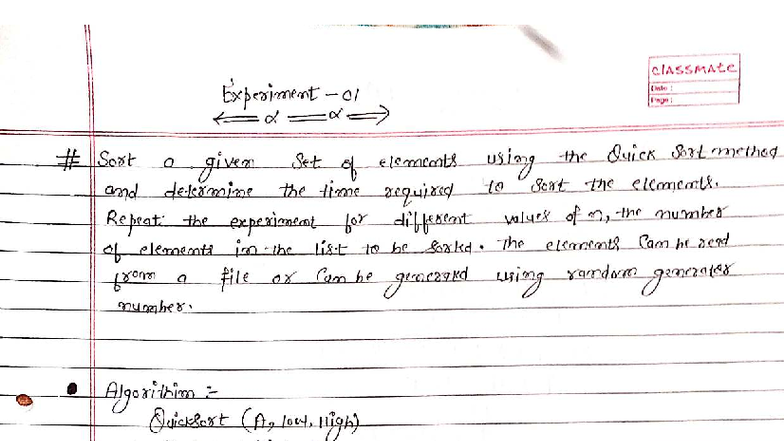 Experiment - 01
classmate
Date :
Page :
# Sort to a given Set of elements using the Quick Sort method
and determine the time required to sort the elements.
Repeat the experiment for different values of n, the number
of elements in the list to be sorted. The elements Can be read
from a file or Can be generated using random generator
number.
• Algorithim :-
QuickSort (A, low, High)